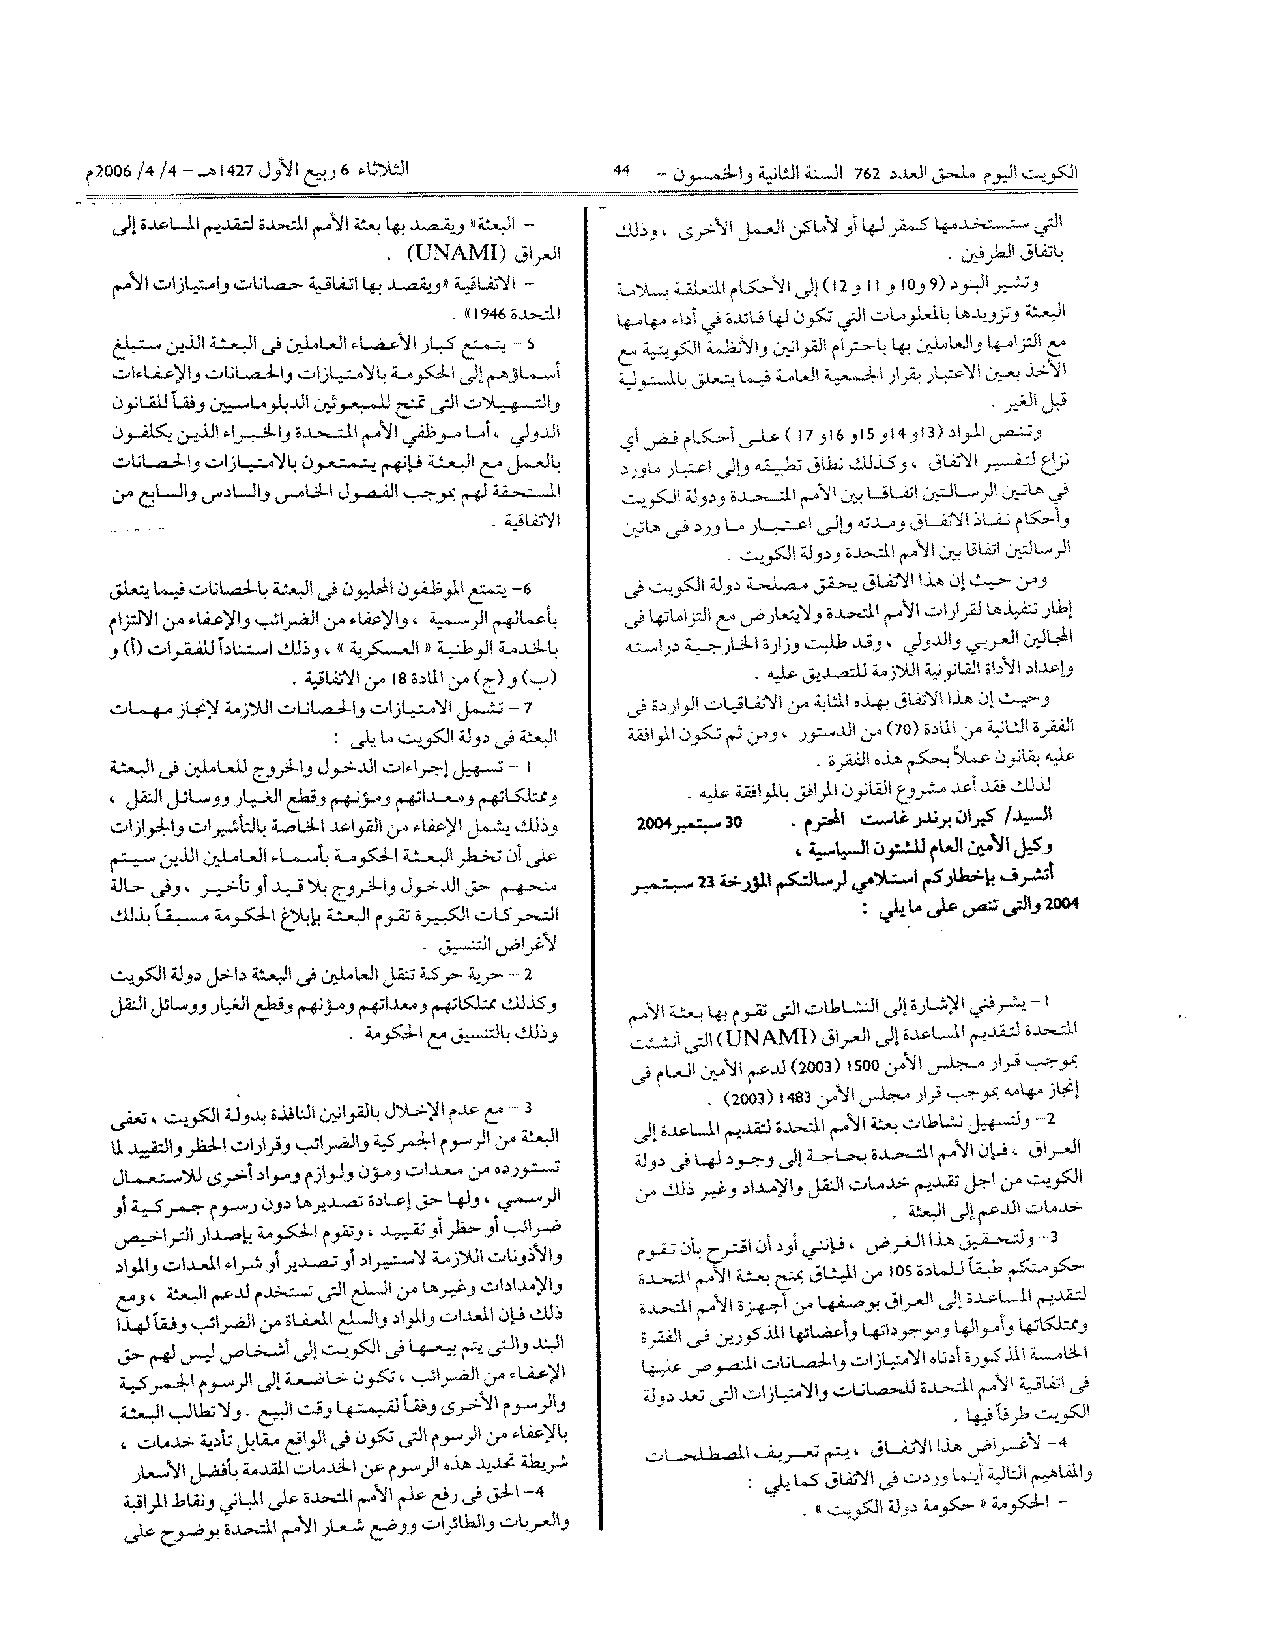 الكويت اليوم ملحق العدد 762 السنة الثانية والخمسون – 44 الثلاثاء 6 ربيع الأول 1427هـ – 4/ 4/ 2006م
التي ستستخدمها كمقر لها أو لأماكن العمل الأخرى ، وذلك
باتفاق الطرفين .
وتشير البنود (9 و10 و 11 و 12) إلى الأحكام المتعلقة بسلامة
البعثة وتزويدها بالمعلومات التي تكون لها فائدة في أداء مهامها
مع التزامها والعاملين بها باحترام القوانين والأنظمة الكويتية مع
الأخذ بعين الاعتبار بقرار الجمعية العامة فيما يتعلق بالمسئولية
قبل الغير .
وتنص المواد (13و 14و 15و 16و 17 ) على أحكام فض أي
نزاع لتفسير الاتفاق ، وكذلك نطاق تطبيقه وإلى اعتبار ماورد
في هاتين الرسالتين اتفاقا بين الأمم المتحدة ودولة الكويت
وأحكام نفاذ الاتفاق ومدته وإلى اعتبار ما ورد في هاتين
الرسالتين اتفاقا بين الأمم المتحدة ودولة الكويت .
ومن حيث إن هذا الاتفاق يحقق مصلحة دولة الكويت في
إطار تنفيذها لقرارات الأمم المتحدة ولايتعارض مع التزاماتها في
المجالين العربي والدولي ، وقد طلبت وزارة الخارجية دراسته
وإعداد الأداة القانونية اللازمة للتصديق عليه .
وحيث إن هذا الاتفاق بهذه المثابة من الاتفاقيات الواردة في
الفقرة الثانية من المادة (70) من الدستور ، ومن ثم تكون الموافقة
عليه بقانون عملاً بحكم هذه الفقرة .
لذلك فقد أعد مشروع القانون المرافق بالموافقة عليه .
السيد/ كيران برندر غاست المحترم . 30 سبتمبر 2004
وكيل الأمين العام للشئون السياسية ،
أتشرف بإخطاركم استلامي لرسالتكم المؤرخة 23 سبتمبر
2004 والتي تنص على ما يلي :
1- يشرفني الإشارة إلى النشاطات التي تقوم بها بعثة الأمم
المتحدة لتقديم المساعدة إلى العراق (UNAMI) التي أنشئت
بموجب قرار مجلس الأمن 1500 (2003) لدعم الأمين العام في
إنجاز مهامه بموجب قرار مجلس الأمن 1483 (2003) .
2- ولتسهيل نشاطات بعثة الأمم المتحدة لتقديم المساعدة إلى
العراق ، فإن الأمم المتحدة بحاجة إلى وجود لها في دولة
الكويت من اجل تقديم خدمات النقل والإمداد وغير ذلك من
خدمات الدعم إلى البعثة .
3- ولتحقيق هذا الغرض ، فإنني أود أن اقترح بأن تقوم
حكومتكم طبقاً للمادة 105 من الميثاق بمنح بعثة الأمم المتحدة
لتقديم المساعدة إلى العراق بوصفها من أجهزة الأمم المتحدة
وممتلكاتها وأموالها وموجوداتها وأعضائها المذكورين في الفقرة
الخامسة المذكورة أدناه الامتيازات والحصانات المنصوص عليها
في اتفاقية الأمم المتحدة للحصانات والامتيازات التي تعد دولة
الكويت طرفاً فيها .
4- لأغراض هذا الاتفاق ، يتم تعريف المصطلحات
والمفاهيم التالية أينما وردت في الاتفاق كما يلي :
– الحكومة « حكومة دولة الكويت » .
– البعثة» ويقصد بها بعثة الأمم المتحدة لتقديم المساعدة إلى
العراق (UNAMI) .
– الاتفاقية «ويقصد بها اتفاقية حصانات وامتيازات الأمم
المتحدة 1946» .
5 – يتمتع كبار الأعضاء العاملين في البعثة الذين ستبلغ
أسماؤهم إلى الحكومة بالامتيازات والحصانات والإعفاءات
والتسهيلات التي تمنح للمبعوثين الدبلوماسيين وفقاً للقانون
الدولي ، أما موظفي الأمم المتحدة والخبراء الذين يكلفون
بالعمل مع البعثة فإنهم يتمتعون بالامتيازات والحصانات
المستحقة لهم بموجب الفصول الخامس والسادس والسابع من
الاتفاقية .
6- يتمتع الموظفون المحليون في البعثة بالحصانات فيما يتعلق
بأعمالهم الرسمية ، والإعفاء من الضرائب والإعفاء من الالتزام
بالخدمة الوطنية « العسكرية » ، وذلك استناداً للفقرات (أ) و
(ب) و (ج) من المادة 18 من الاتفاقية .
7 – تشمل الامتيازات والحصانات اللازمة لإنجاز مهمات
البعثة في دولة الكويت ما يلي :
1 – تسهيل إجراءات الدخول والخروج للعاملين في البعثة
وممتلكاتهم ومعداتهم ومؤنهم وقطع الغيار ووسائل النقل ،
وذلك يشمل الإعفاء من القواعد الخاصة بالتأشيرات والجوازات
على أن تخطر البعثة الحكومة بأسماء العاملين الذين سيتم
منحهم حق الدخول والخروج بلا قيد أو تأخير ، وفي حالة
التحركات الكبيرة تقوم البعثة بإبلاغ الحكومة مسبقاً بذلك
لأغراض التنسيق .
2 – حرية حركة تنقل العاملين في البعثة داخل دولة الكويت
وكذلك ممتلكاتهم ومعداتهم ومؤنهم وقطع الغيار ووسائل النقل
وذلك بالتنسيق مع الحكومة .
3 – مع عدم الإخلال بالقوانين النافذة بدولة الكويت ، تعفى
البعثة من الرسوم الجمركية والضرائب وقرارات الحظر والتقييد لما
تستورده من معدات ومؤن ولوازم ومواد أخرى للاستعمال
الرسمي ، ولها حق إعادة تصديرها دون رسوم جمركية أو
ضرائب أو حظر أو تقييد ، وتقوم الحكومة بإصدار التراخيص
والأذونات اللازمة لاستيراد أو تصدير أو شراء المعدات والمواد
والإمدادات وغيرها من السلع التي تستخدم لدعم البعثة ، ومع
ذلك فإن المعدات والمواد والسلع المعفاة من الضرائب وفقاً لهذا
البند والتي يتم بيعها في الكويت إلى أشخاص ليس لهم حق
الإعفاء من الضرائب ، تكون خاضعة إلى الرسوم الجمركية
والرسوم الأخرى وفقاً لقيمتها وقت البيع . ولا تطالب البعثة
بالإعفاء من الرسوم التي تكون في الواقع مقابل تأدية خدمات ،
شريطة تحديد هذه الرسوم عن الخدمات المقدمة بأفضل الأسعار
4- الحق في رفع علم الأمم المتحدة على المباني ونقاط المراقبة
والعربات والطائرات ووضع شعار الأمم المتحدة بوضوح على